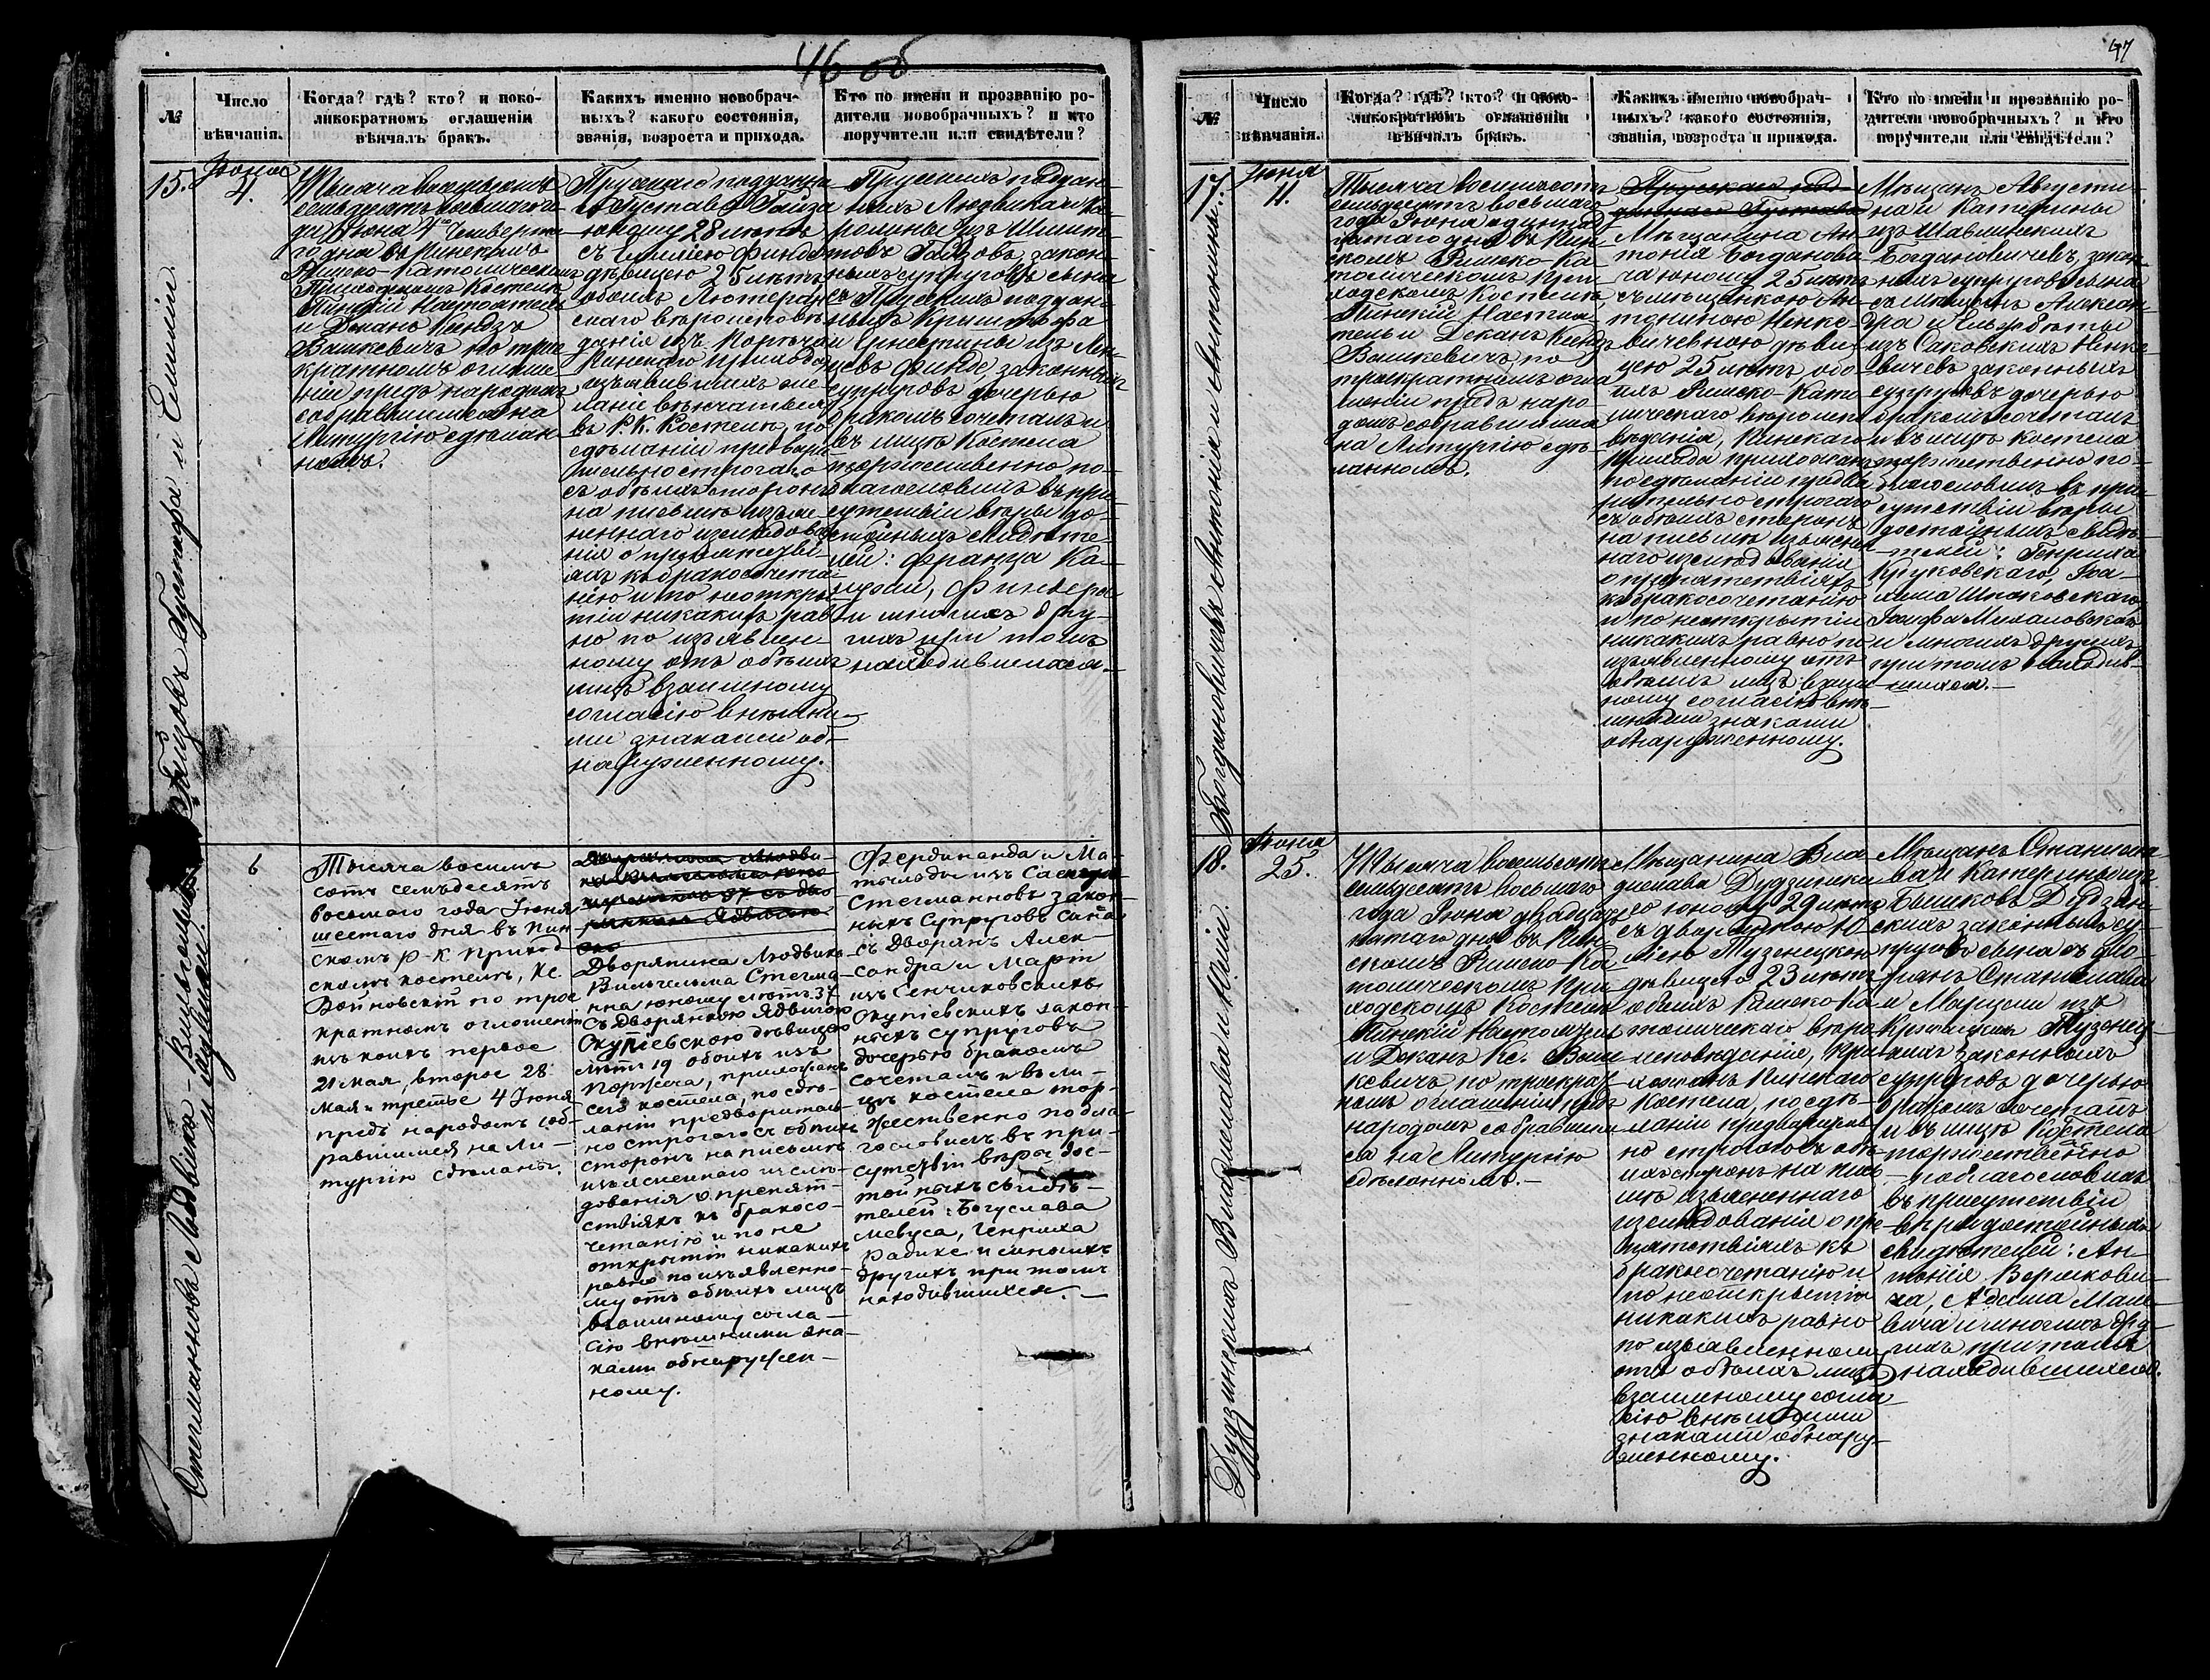 46 об
№
Число
вѣнчанія.
Когда? гдѣ? кто? и поко-
ликократномъ оглашеніи
вѣнчалъ бракъ.
Какихъ именно новобрач-
ныхъ? какого состоянія,
званія, возроста и прихода.
Кто по имени и прозванію ро-
дители новобрачныхъ? и кто
поручители или свидѣтели?
15.
Гайзовъ Густафа и Емиліи.
Іюня
4.
Тысяча восемьсотъ
семьдесятъ восьмаго
Іюня 4го Четверта
го дня въ Пинскомъ
Римско-Католическомъ
Приходскомъ Костелѣ
Пинскій Настоятель
и Деканъ Ксендзъ
Вашкевичъ по трое
кратномъ оглаше
ніи предъ народомъ
собравшимся на
Литургію сдѣлан
номъ.
Прусскаго поддана
Густава Гайза
юношу 28 лѣтъ
съ Емиліею Финде
дѣвицею 25 лѣтъ,
обоихъ Лютеран
скаго вѣроисповѣ
данія изъ Порѣчья
Пинскаго прихода
изъявившихъ же
ланіе вѣнчаться
въ Р. К. Костелѣ, по
сдѣланіи предвари
тельно строгаго
съ обѣихъ сторонъ
на письмѣ изъяс
неннаго изслѣдова
нія о препятстві
яхъ къ бракосочета
нію и по неоткры
тіи никакихъ рав
но по изъявлен
ному отъ обѣихъ
лицъ взаимному
согласію внѣшни
ми знаками об
наруженному.
Прусскихъ поддан
ныхъ Людвика и Ка
ролины изъ Шмит
товъ Гайзовъ, закон
ныхъ супруговъ сына
съ Прусскихъ поддан
ныхъ Крыштофа
и Ернестины изъ
Финде, законныхъ
супруговъ дочерью
бракомъ сочеталъ и
въ лицѣ Костела
торжественно по
благословилъ въ при
сутствіи вѣры до
стойныхъ свидѣте
лей: Франца
и многихъ дру
гихъ при томъ
находившихся.
Стегманнова Людвика-Вильгельма
и Ядвиги.
6
Тысяча восемь
сотъ семьдесятъ
восьмаго года Іюня
шестаго дня въ Пин
скомъ Р-К Приход
скомъ костелѣ, Кс.
Войновскій по трое
кратномъ оглашеніи
изъ коихъ первое
21 Мая, второе 28
Мая и третье 4 Іюня
предъ народомъ соб
равшимся на Ли-
тургію сдѣланы.
Дворянина Людвика
Вильгельма Стегма
нна юношу лѣтъ 37
съ Дворянкою Ядвигою
Окуліевскою дѣвицею
лѣтъ 19 обоихъ изъ
Порѣчья, прихожанъ
сего костела, по сдѣ
ланіи предваритель
но строгаго съ обѣихъ
сторонъ на письмѣ
изъясненнаго изслѣ
дованія о препят
ствіяхъ къ бракосо
четанію и по не
открытіи никакихъ
равно по изъявленно
му отъ обѣихъ лицъ
взаимному согла
сію внѣшними зна
ками обнаружен
ному.
Фердинанда и Ма
тильды изъ
Стегманновъ закон
ныхъ супруговъ сына
съ Дворянъ Алек
сандра и Март
изъ Сенчиковскихъ
Окуліевскихъ закон
ныхъ супруговъ
дочерью бракомъ
сочеталъ и въ ли
цѣ костела тор
жественно побла
гословилъ въ при
сутствіи вѣры дос
тойныхъ свидѣ
телей: Богуслава
Мевуса, Генриха
Радике и многихъ
другихъ при томъ
находившихся.
47
№
Число
вѣнчанія.
Когда? гдѣ? кто? и поко-
ликократномъ оглашеніи
вѣнчалъ бракъ.
Какихъ именно новобрач-
ныхъ? какого состоянія,
званія, возроста и прихода.
Кто по имени и прозванію ро-
дители новобрачныхъ? и кто
поручители или свидѣтели?
17.
Богдановичевъ Антонія и Антонины.
Іюня
11.
Тысяча восемьсотъ
семьдесятъ восьмаго
года Іюня одинад
цатаго дня въ Пин
скомъ Римско-Ка
толическомъ При
ходскомъ Костелѣ
Пинскій Настоя
тель и Деканъ Ксендзъ
Вашкевичъ по
троекратномъ огла
шеніи предъ наро
домъ собравшимся
на Литургію сдѣ
ланномъ.
Прусскаго под
даннаго Густава
Мѣщанина Ан
тонія Богданови
ча юношу 25 лѣтъ
съ мѣщанкою Ан
тониною Ненке
вичевною дѣви
цею 25 лѣтъ обо
ихъ Римско-Като
лическаго вѣроиспо
вѣданія, Пинскаго
Прихода прихожанъ
по сдѣланіи предва
рительно строгаго
съ обѣихъ сторонъ
на письмѣ изъяснен
наго изслѣдованія
о препятствіяхъ
къ бракосочетанію
и по неоткрытіи
никакихъ равно по
изъявленному отъ
обѣихъ лицъ взаим
ному согласію внѣ
шними знаками
обнаруженному.
Мѣщанъ Августи
на и Катерины
изъ Шавлинскихъ
Богдановичевъ, закон
ныхъ супруговъ сына
съ мѣщанъ Алексан
дра и Ельжбеты
изъ Саковскихъ Ненке
вичевъ законныхъ
супруговъ дочерью
бракомъ сочеталъ
и въ лицѣ Костела
торжественно по
благословилъ въ при
сутствіи вѣры
достойныхъ свидѣ
телей: Генриха
Круковскаго, Іоа
хима
Іосифа Михаловскаго
и многихъ другихъ
при томъ находив
шихся.
18.
Дудзинскихъ Владислава и Юліи.
Іюня
25.
Тысяча восемьсотъ
семьдесятъ восьмаго
года Іюня двадцать
пятаго дня въ Пин
скомъ Римско-Ка
толическомъ При
ходскомъ Костелѣ
Пинскій Настоятель
и Деканъ Кс. Ваш
кевичъ, по троекрат
номъ оглашеніи предъ
народомъ собравшим
ся на Литургію
сдѣланномъ.
Мѣщанина Вла
дислава Дудзинска
го юношу 29 лѣтъ
съ дворянкою Ю
ліею Тузенецкою
дѣвицею 23 лѣтъ
обоихъ Римско-Ка
толическаго вѣро
исповѣданія, при
хожанъ Пинскаго
Костела, по сдѣ
ланіи предваритель
но строгаго съ обѣ
ихъ сторонъ на пись
мѣ изъясненнаго
изслѣдованія о пре
пятствіяхъ къ
бракосочетанію и
по неоткрытіи
никакихъ равно
по изъявленному
отъ обѣихъ лицъ
взаимному согла
сію внѣшними
знаками обнару
женному.
Мѣщанъ Станисла
ва и Катерины изъ
Бышковъ Дудзин
скихъ законныхъ су
пруговъ сына съ дво
рянъ Станислава
и Марцели изъ
Тузенец
кихъ законныхъ
супруговъ дочерью
бракомъ сочеталъ
и въ лицѣ Костела
торжественно
поблагословилъ
въ присутствіи
вѣры достойныхъ
свидѣтелей: Ан
тонія Верикови
ча, Адама Маце
вича и многихъ дру
гихъ при томъ
находившихся.